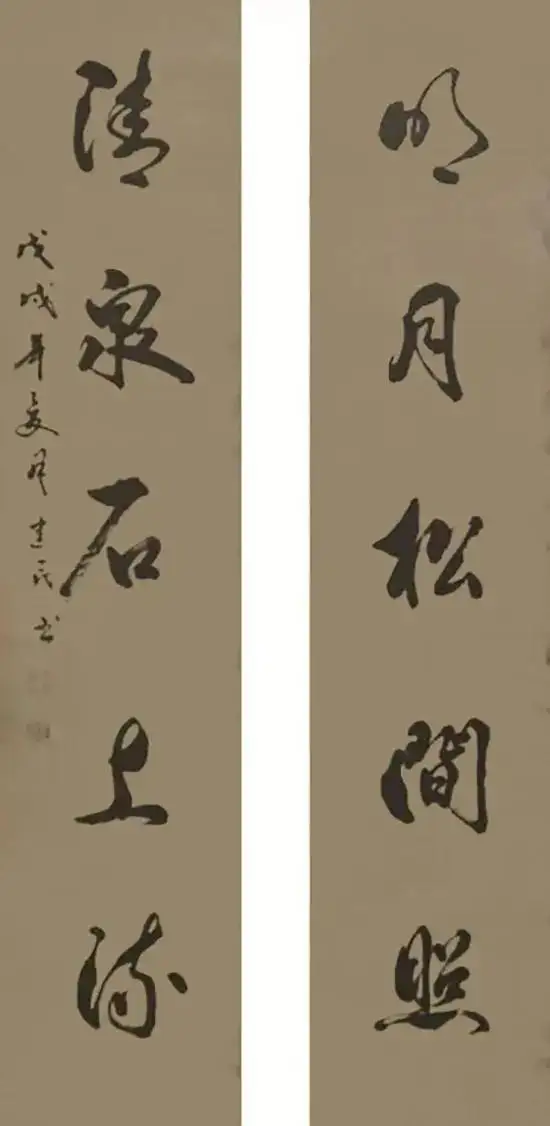 明月松間照
清泉石上流
戊戌年夏月建民书